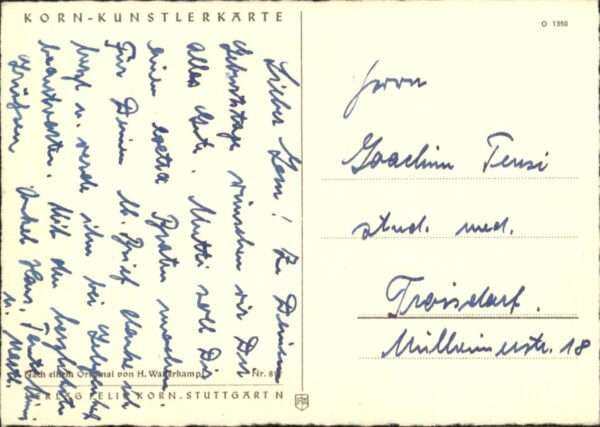 KORN-KUNSTLERKARTE
O 1350
Lieber Gen! Zu Deinem
Geburtstage wünschen wir Dir
alles Gute. Mutti soll Dir
einen extra machen.
Für Deinen lb. Brief danke ich
u. werde ihn bei Gelegenheit
beantworten. Mit den herzlichsten
Grüßen Onkel Hans,
Nach einem Original von H. Wallerkamp
Nr. 81
VERLAG FELIX KORN·STUTTGART N
Herrn
Joachim Tensi
stud. med.
Troisdorf.
Mülheimerstr. 18